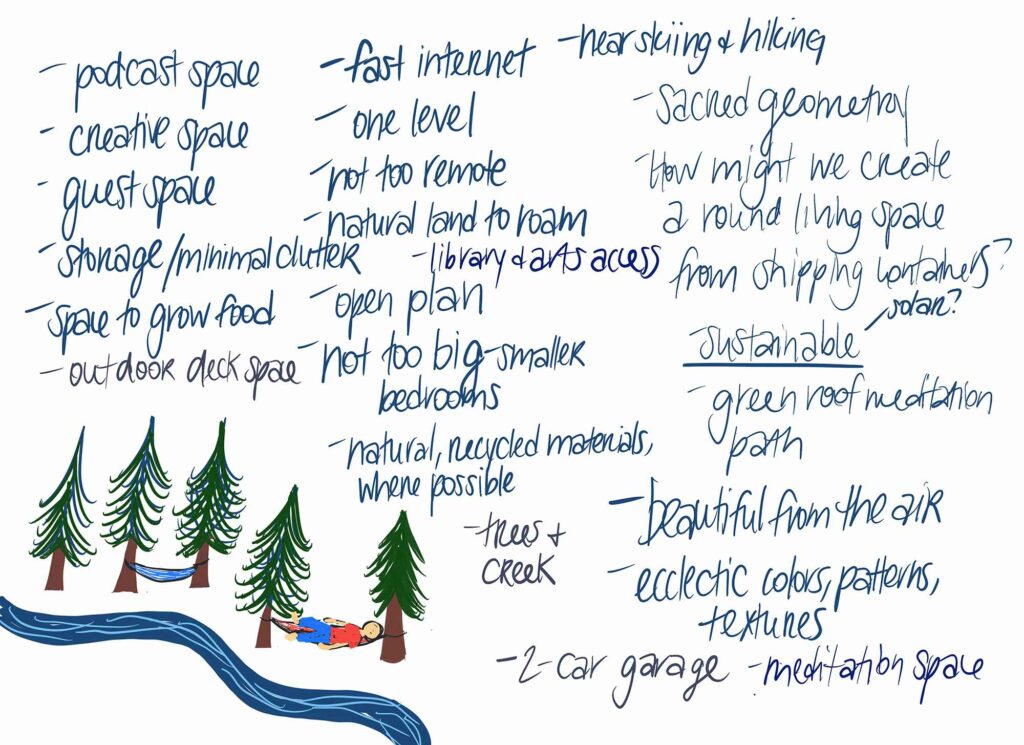 - podcast space
- creative space
- guest space
- storage/minimal clutter
- space to grow food
- outdoor deck space
- fast internet
- one level
- not too remote
- natural land to roam
- library & arts access
- open plan
- not too big - smaller
bedrooms
- natural, recycled materials,
where possible
- trees &
creek
- near skiing & hiking
- sacred geometry
- How might we create
a round living space
from shipping containers?
solar?
sustainable
- green roof meditation
path
- beautiful from the air
- ecclectic colors, patterns,
textures
- 2-car garage
- meditation space